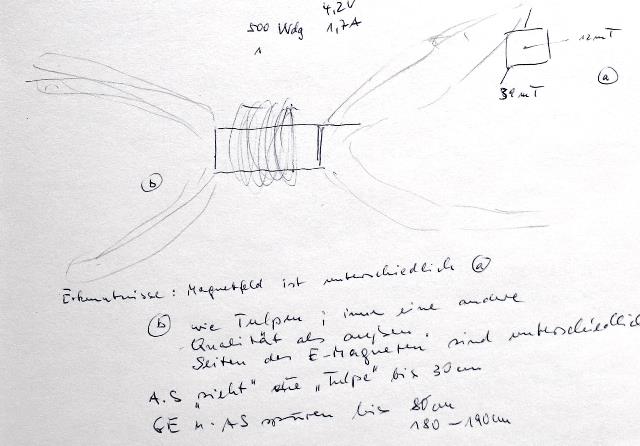 4,2V
500 Wdg 1,7A
1
12mT
39mT
a
b
Erkenntnisse: Magnetfeld ist unterschiedlich a
b wie Tulpen; innen eine andere
Qualität als außen.
Seiten des E-Magneten sind unterschiedlich
A.S "sieht" die "Tulpe" bis 30cm
GE u. AS spüren bis 80cm
180-190cm